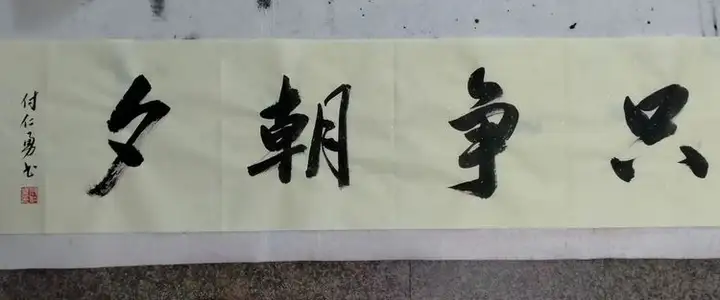 只争朝夕
付仁勇书